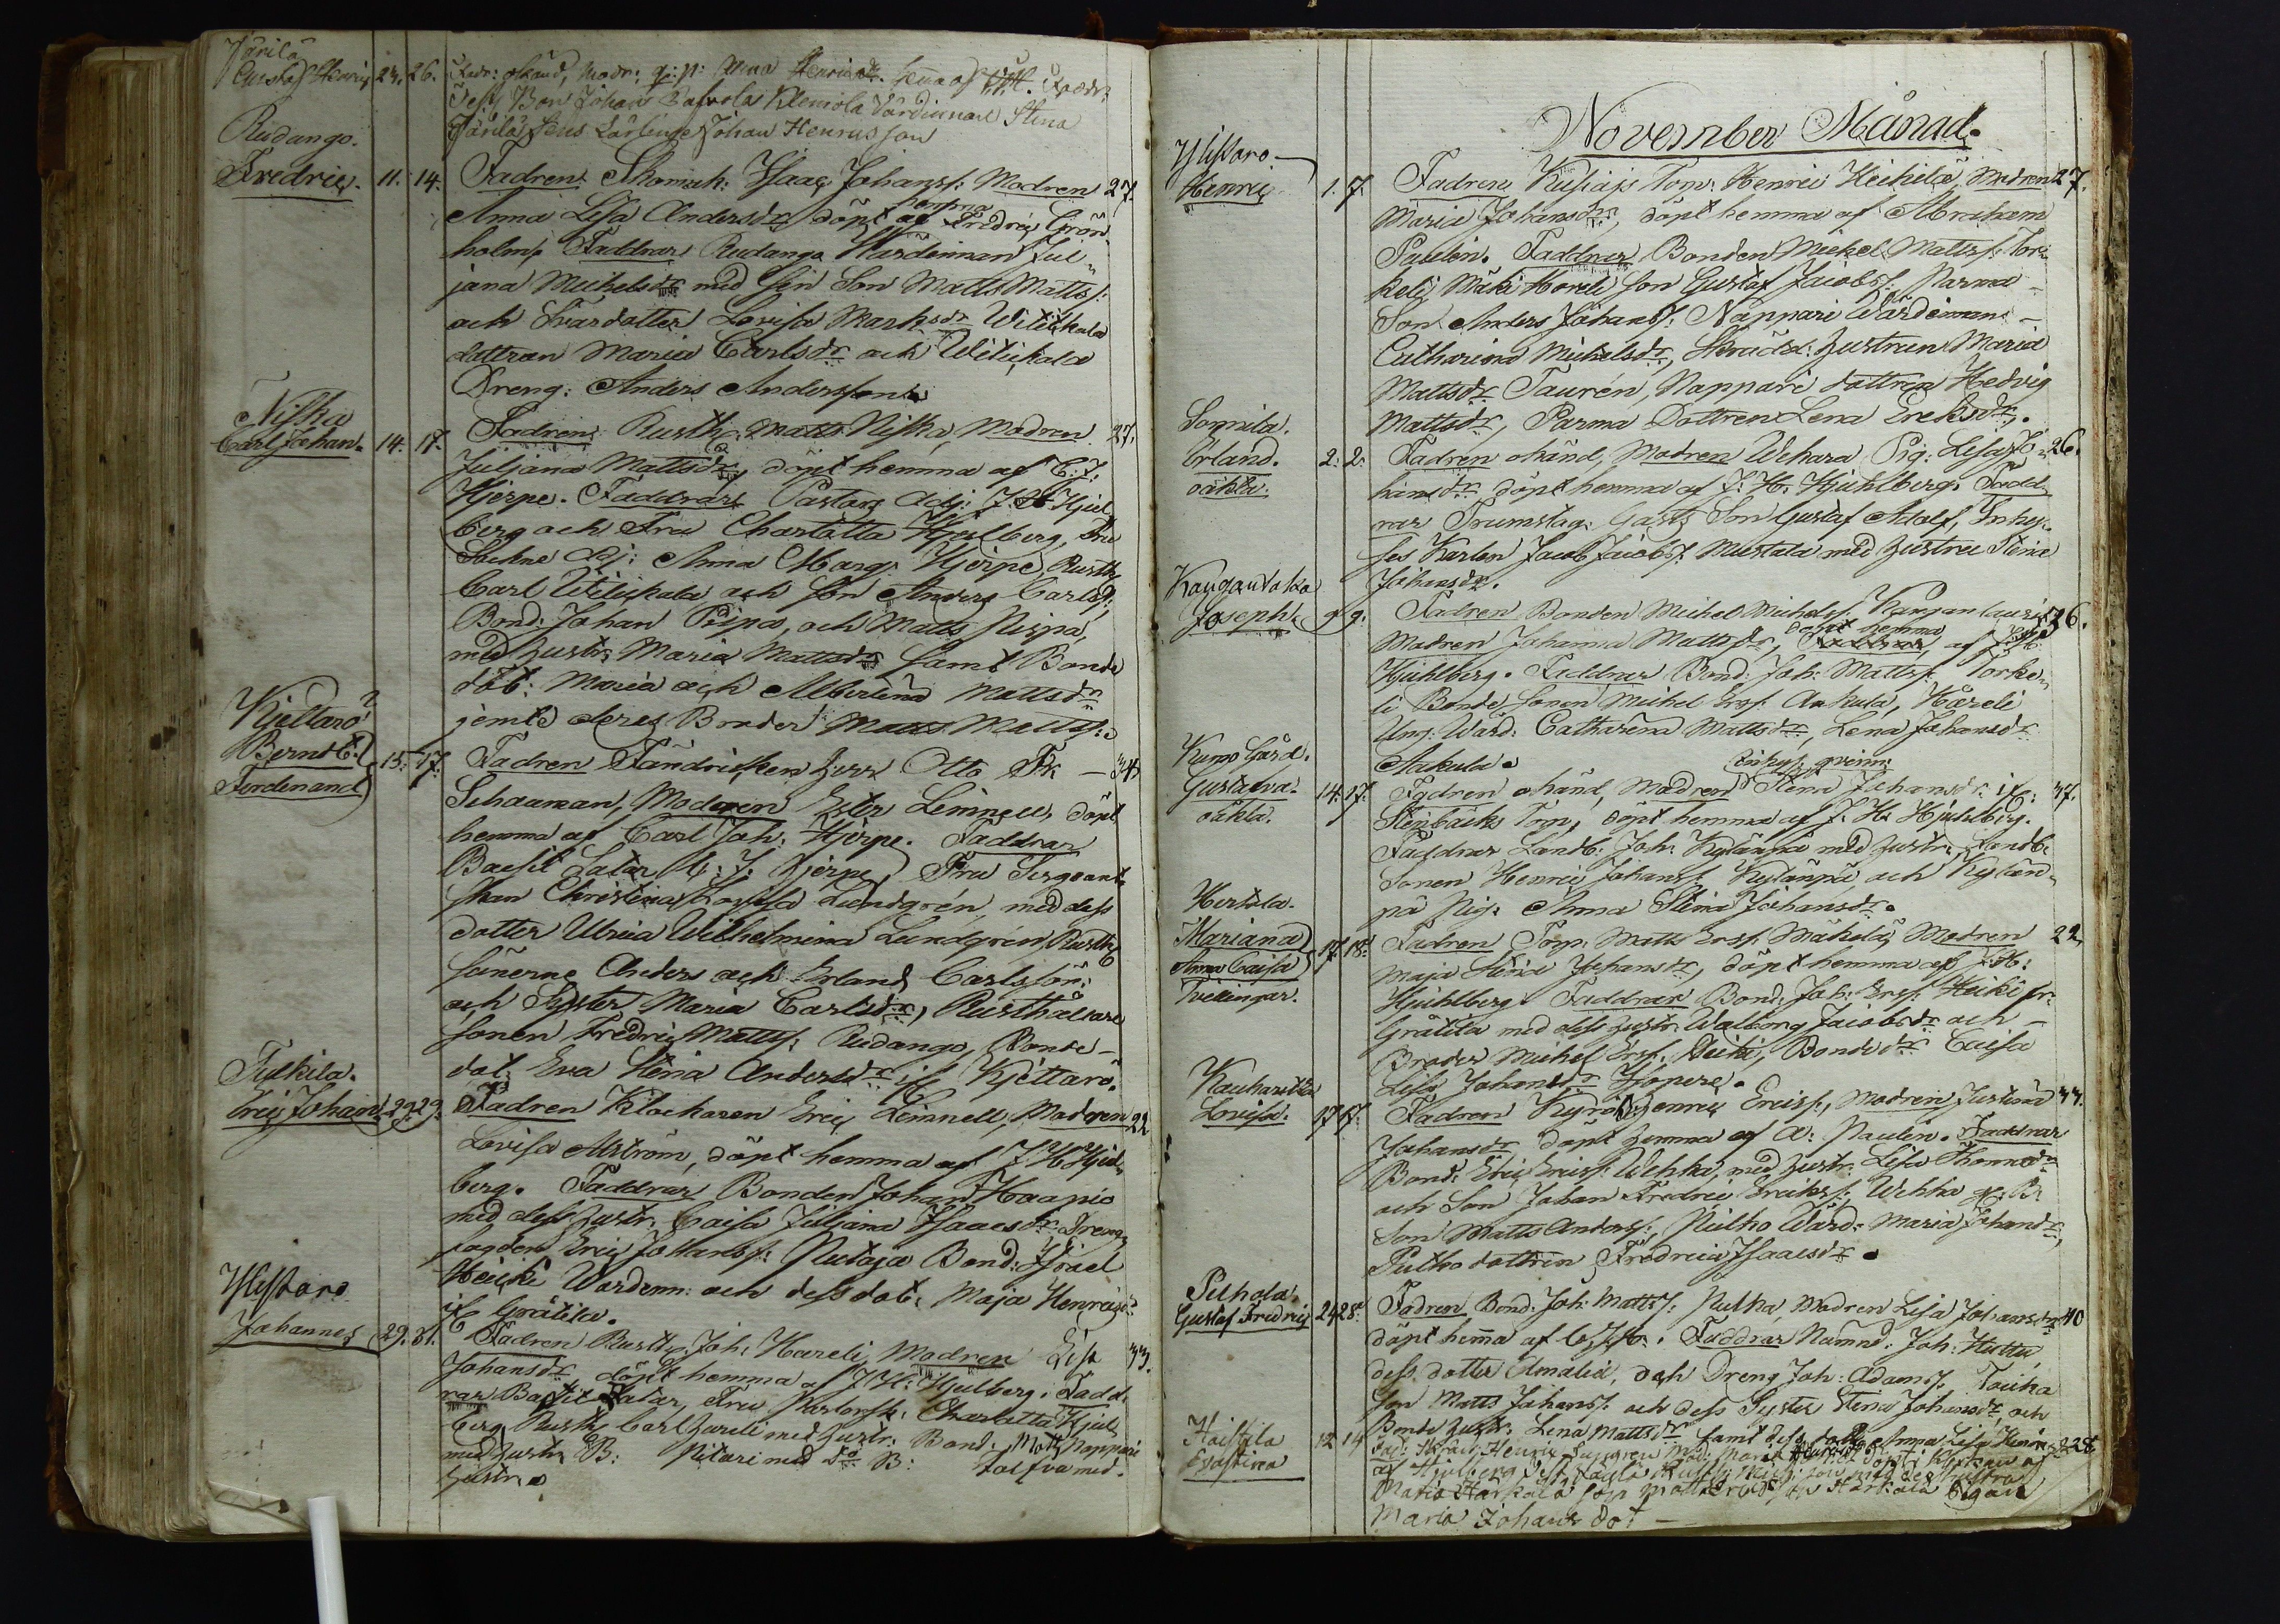 Järilä
Gustaf Henric 23. 26. Fadr: okänd, Modr: Anna Henricsdr. hemma af Faddr:
Bon Johan Kleemola Värdinnan Stina
Järilä Johan Henricsson
Rudango.
Fredric. 11. 14. Fadren Skomak: Isaac Johanss: Modren 27.
Anna Lisa Andersdr döpt hemma af Fredric Grön
holm, Faddrar Rudango Wärdinnan Jul
jana Michelsdr med sin Son Matts Mattss:
och Svardotter Lovisa Marksdr Witikkala
dottran Maria Carlsdr och Witikkala
Dreng: Anders Andersson.
Niska
Carl Johan. 14. 17. Fadren Rusth: Matts Niska, Modren 27.
Juljana Mattsdr, döpt hemma af C: J:
Hjerpe. Faddrar Pastors Adj: J. H. Hjul
berg och Fru Charlotta Hjulberg, Fru
Sockne Adj: Anna Marg: Hjerpe, Rusth:
Carl Witikkala och Son Anders Carlss:
Bond: Johan Pispa, och Matts Pispa,
med hustr: Maria Mattsdr samt Bonde
döt: Maria och Albertina Mattsdr
jemte deras Broder Matts Mattss:
Kjettarö
Bernt C:
Ferdinand 15. 17. Fadren Fändricken Herr Otto Fr. — 34
Schauman, Modren Ester Limnell, döpt
hemma af Carl Joh: Hjerpe. Faddrar
Basil Tatar C: J: Hjerpe, Fru Sergeant
skan Christina Lovisa Lundgrén, med dess
dotter Ulrica Wilhelmina Lundgrén, Rusth:
sönerne Anders och Erland Carlssön:
och Syster Maria Carlsdr, Rusthållare
sonen Fredric Mattss: Rudango, Bonde-
dot. Eva Stina Andersdr ifr Kjettarö.
Tulkila.
Eric Johan. 29. 29. Fadren Klockaren Eric Limnell, Modren 22
Lovisa Alström, döpt hemma af J H Hjul
berg. Faddrar Bonden Johan Haapio
med dess hustr: Caisa Juljana Isaacsdr Dreng
Eric Johanss: Putaja Bond: Israel
Heicki Wärdinn: och dess dot: Maja Henricsdr
ifr Grätila.
Ylistaro
Johannes 29. 31. Fadren Rusth: Joh: Hareli, Modren Lisa 33.
Johansdr döpt hemma af J H: Hjulberg: Fadd
rar Basil Tatar, Fru Charlotta Hjul
berg, Rusth: Carl Jureli med hustr: Bond: Matts Nappari
med hustr B: Pitari med B: med
hustr.

November Månad.
Ylistaro—
Henric 1. 7. Fadren Kusiais Torp: Henric Heikilä, Modren 27.
Maria Johansdr, döpt hemma af Abraham
Paulin. Faddrar Bonden Michel Mattss: Tor
keli, Mäki Horeli son Gustaf Jacobss: Parma
Son Anders Johanss: Nappari Wärdinnan
Catharina Michelsdr, Skrädd: hustrun Maria
Mattsdr Taurén, Nappari dottren Hedvig
Mattsdr, Parma Dottren Lena Ericsdr.
Somila.
Erland. 2. 2. Fadren okänd, Modren Wehara Pig: Lisa Jo- 26.
oäkta. hansdr döpt hemma af J: H: Hjuhlberg. Fadd
rar Trumslag: Gasts Son Gustaf Adolf, Inhys
hes Karlen Jacob Jacobss: Mustala med hustru Stina
Johansdr.
Kaugantaka
Joseph. 9. 9. Fadren Bonden Michel Michelss: Kaugan 36.
Modren Johanna Mattsdr, döpt hemma af J: H:
Hjuhlberg. Faddrar Bond: Joh: Mattss: Torke
li Bonde Sonen Michel Erss: Ankula, Hareli
Ung: Wärd: Catharina Mattsdr, Lena Johansdr
Aakula.
Kump Gård.
Gustafva. 14. 17. Fadren okänd, Modren Inhys: qvinn: Stina Johansdr ifr: 37.
oäkta. Stenbäcks Torp, döpt hemma af J: H: Hjuhlberg.
Faddrar Landb: Joh: Kylänpä med hustr: Landb:
Sonen Henric Johanss: Kylänpä, och Kylän
pä Pig: Anna Stina Johansdr.
Hertola.
Mariana
Anna Caisa 17. 18. Fadren Torp: Matts Erss: Mäkilä, Modren 22
Tvillingar. Maja Stina Johansdr, döpt hemma af J: H:
Hjuhlberg. Faddrar Bond: Joh: Erss: Heicki fr:
Grätila med dess hustr: Walborg Jacobsdr och —
Broder Michel Erss: Heicki, Bondedr Caisa
Lisa Johansdr Isopere.
Kauhanoja
Lovisa. 17. 17. Fadren Kyrö Henric Ericss:, Modren Justina 33.
Johansdr döpt hemma af A: Paulin. Faddrar
Bond: Eric Ericss: Wehka, med hustr: Lisa Thomasdr
och Son Johan Fredric Erikss: Wehka B:
Son Matts Anderss: Pultho Wärd: Maria Johansdr,
Pultho dottren Fredrica Isaacsdr.
Pelhola
Gustaf Fredric 24. 28. Fadren Bond: Joh: Mattss: Pulha, Modren Lisa Johansdr 40
döpt hemma af C: J: H:. Faddrar Nämnd: Joh: Huttu
dess dotter Amalia, och Dreng Joh: Adamss. Touka
son Matts Johanss: och dess Syster Stina Johansdr, och
Bonde hustr: Lena Mattsdr samt dess dotter Anna Lisa Henricsdr
Haistila
Evastina 12. 14. Fad: Henric Mod: Maria döpt af 28
af Hjulberg, Rusth: med des hustru
Maria Härkälä Matts Härkälä Pigan
Maria Johans dot —